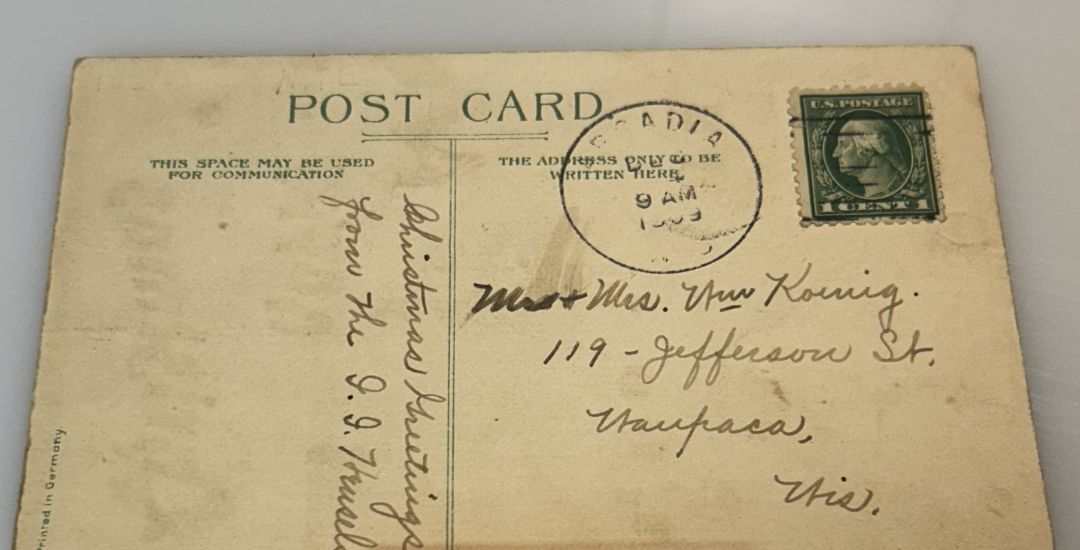 POST CARD
THIS SPACE MAY BE USED
FOR COMMUNICATION
THE ADDRESS ONLY TO BE
WRITTEN HERE
ARCADIA
DEC
9 AM
1909
U.S. POSTAGE
1 CENT 1
Christmas Greetings
from the
Mr + Mrs. Wm Koenig.
119 - Jefferson St.
Waupaca,
Wis.
Printed in Germany